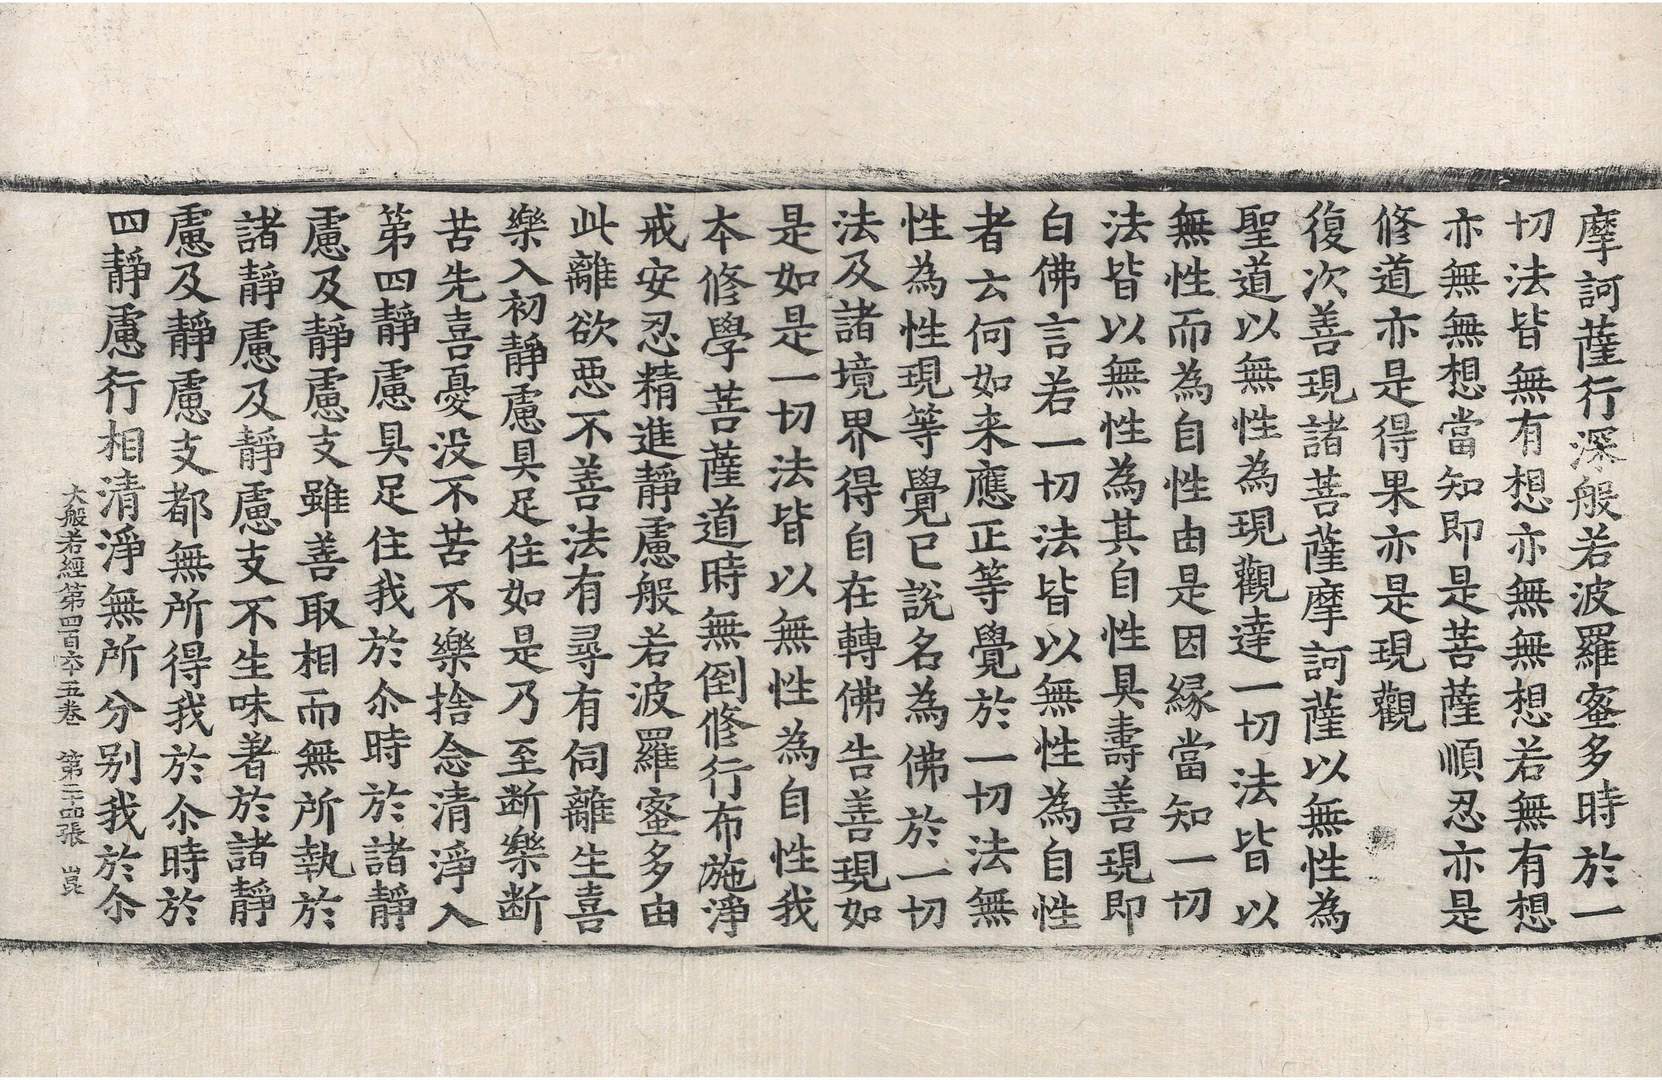 摩訶薩行深般若波羅蜜多時於一
切法皆無有想亦無無想若無有想
亦無無想當知即是菩薩順忍亦是
修道亦是得果亦是現觀
復次善現諸菩薩摩訶薩以無性為
聖道以無性為現觀達一切法皆以
無性而為自性由是因緣當知一切
法皆以無性為其自性具壽善現即
白佛言若一切法皆以無性為自性
者云何如来應正等覺於一切法無
性為性現等覺已說名為佛於一切
法及諸境界得自在轉佛告善現如
是如是一切法皆以無性為自性我
本修學菩薩道時無倒修行布施淨
戒安忍精進靜慮般若波羅蜜多由
此離欲惡不善法有尋有伺離生喜
樂入初靜慮具足住如是乃至斷樂斷
苦先喜憂没不苦不樂捨念清淨入
第四靜慮具足住我於尒時於諸靜
慮及靜慮支雖善取相而無所執於
諸靜慮及靜慮支不生味著於諸靜
慮及靜慮支都無所得我於尒時於
四靜慮行相清淨無所分别我於尒
大般若經第四百六十五卷 第二十四張 崑